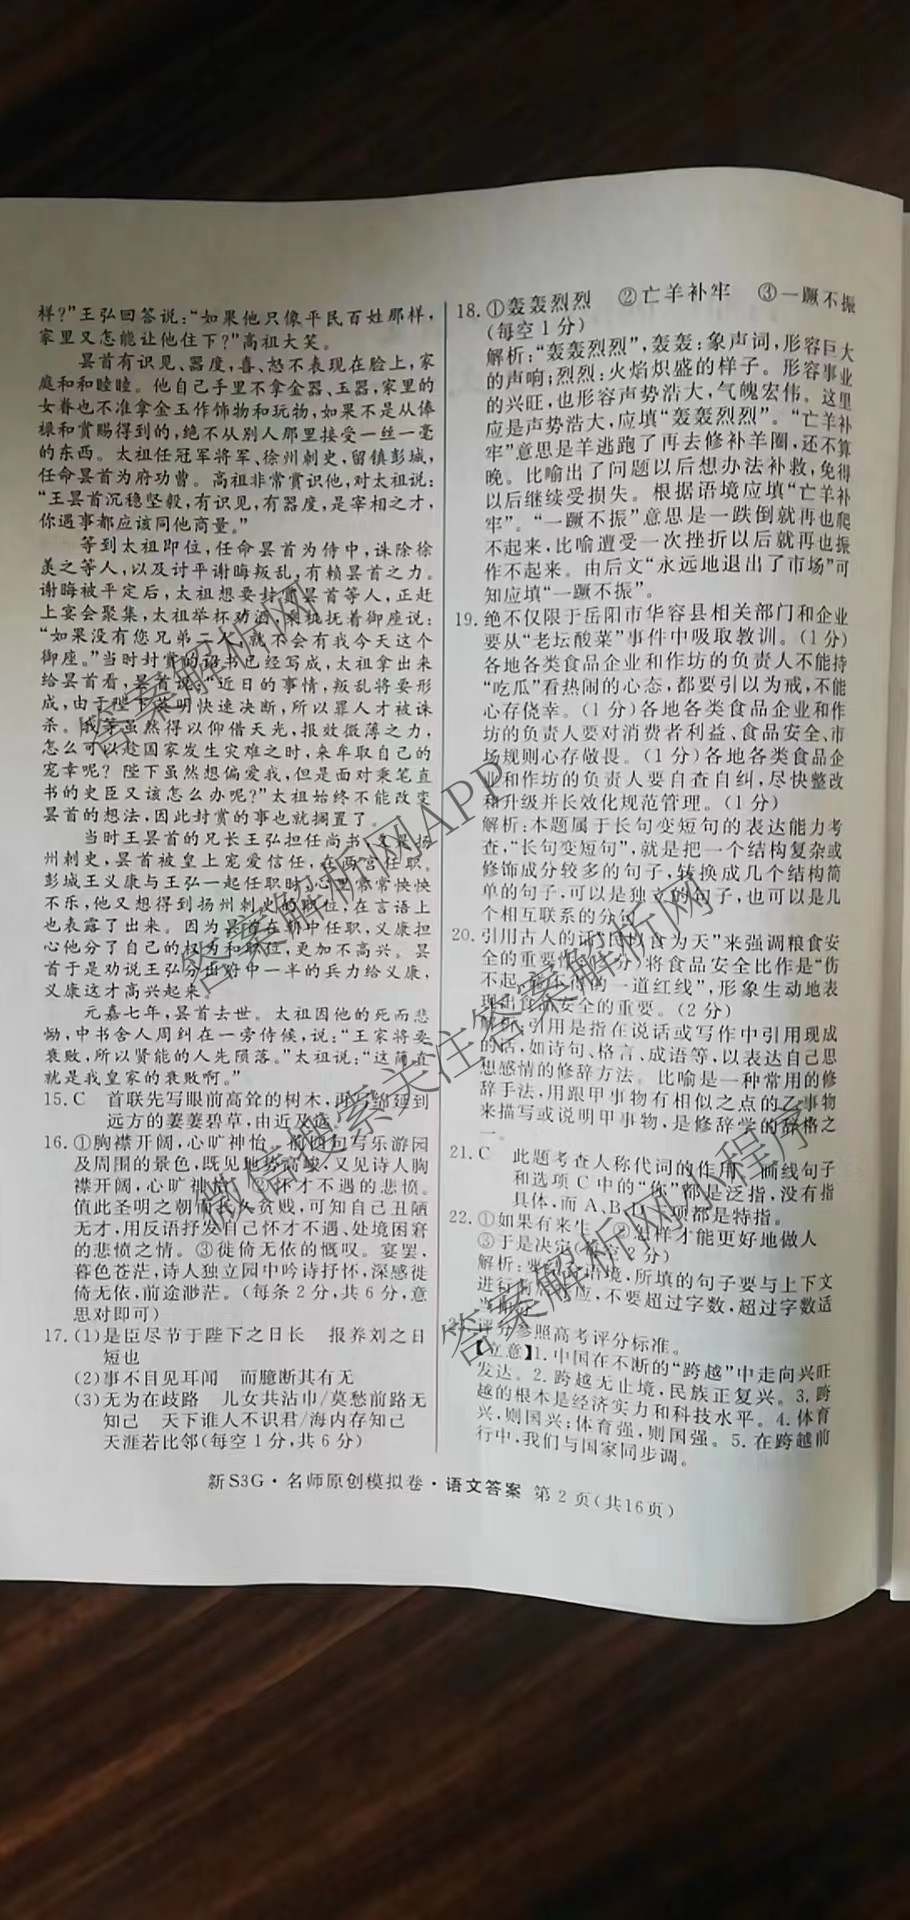 样?”王弘回答说:“如果他只像平民百姓那样,
家里又怎能让他住下?”高祖大笑。
昙首有识见、器度,喜、怒不表现在脸上,家
庭和和睦睦。他自己手里不拿金器、玉器,家里的
女眷也不准拿金玉作饰物和玩物,如果不是从俸
禄和赏赐得到的,绝不从别人那里接受一丝一毫
的东西。太祖任冠军将军、徐州刺史,留镇彭城,
任命昙首为府功曹。高祖非常赏识他,对太祖说:
“王昙首沉稳坚毅,有识见,有器度,是宰相之才,
你遇事都应该同他商量。”
等到太祖即位,任命昙首为侍中,诛除徐
羡之等人,以及讨平谢晦叛乱,有赖昙首之力。
谢晦被平定后,太祖想要封赏昙首等人,正赶
上宴会聚集,太祖举杯劝酒,乘机抚着御座说:
“如果没有您兄弟二人,就不会有我今天这个
御座。”当时封赏的诏书已经写成,太祖拿出来
给昙首看,昙首说:“近日的事情,叛乱将要形
成,由于陛下英明快速决断,所以罪人才被诛
杀。我等虽然得以仰借天光,报效微薄之力,
怎么可以趁国家发生灾难之时,来牟取自己的
宠幸呢?陛下虽然想偏爱我,但是面对秉笔直
书的史臣又该怎么办呢?”太祖始终不能改变
昙首的想法,因此封赏的事也就搁置了。
当时王昙首的兄长王弘担任尚书,兼扬
州刺史,昙首被皇上宠爱信任,在两宫任职。
彭城王义康与王弘一起任职时,心里常常怏怏
不乐,他又想得到扬州刺史的职位,在言语上
也表露了出来。因为昙首在朝中任职,义康担
心他分了自己的权力和职位,更加不高兴。昙
首于是劝说王弘分出府中一半的兵力给义康,
义康这才高兴起来。
元嘉七年,昙首去世。太祖因他的死而悲
恸,中书舍人周纠在一旁侍候,说:“王家将要
衰败,所以贤能的人先陨落。”太祖说:“这简直
就是我皇家的衰败啊。”
15.C 首联先写眼前高耸的树木,再写绵延到
远方的萋萋碧草,由近及远。
16.①胸襟开阔,心旷神怡。前四句写乐游园
及周围的景色,既见地势高峻,又见诗人胸
襟开阔,心旷神怡。②怀才不遇的悲愤。
值此圣明之朝而我人贫贱,可知自己丑陋
无才,用反语抒发自己怀才不遇、处境困窘
的悲愤之情。③徙倚无依的慨叹。宴罢,
暮色苍茫,诗人独立园中吟诗抒怀,深感徙
倚无依,前途渺茫。(每条2分,共6分,意
思对即可)
17.(1)是臣尽节于陛下之日长 报养刘之日
短也
(2)事不目见耳闻 而臆断其有无
(3)无为在歧路 儿女共沾巾/莫愁前路无
知己 天下谁人不识君/海内存知己
天涯若比邻(每空1分,共6分)
18.①轰轰烈烈 ②亡羊补牢 ③一蹶不振
(每空1分)
解析:“轰轰烈烈”,轰轰:象声词,形容巨大
的声响;烈烈:火焰炽盛的样子。形容事业
的兴旺,也形容声势浩大,气魄宏伟。这里
应是声势浩大,应填“轰轰烈烈”。“亡羊补
牢”意思是羊逃跑了再去修补羊圈,还不算
晚。比喻出了问题以后想办法补救,免得
以后继续受损失。根据语境应填“亡羊补
牢”。“一蹶不振”意思是一跌倒就再也爬
不起来,比喻遭受一次挫折以后就再也振
作不起来。由后文“永远地退出了市场”可
知应填“一蹶不振”。
19.绝不仅限于岳阳市华容县相关部门和企业
要从“老坛酸菜”事件中吸取教训。(1分)
各地各类食品企业和作坊的负责人不能持
“吃瓜”看热闹的心态,都要引以为戒,不能
心存侥幸。(1分)各地各类食品企业和作
坊的负责人要对消费者利益、食品安全、市
场规则心存敬畏。(1分)各地各类食品企
业和作坊的负责人要自查自纠,尽快整改
和升级并长效化规范管理。(1分)
解析:本题属于长句变短句的表达能力考
查,“长句变短句”,就是把一个结构复杂或
修饰成分较多的句子,转换成几个结构简
单的句子,可以是独立的句子,也可以是几
个相互联系的分句。
20.引用古人的话“民以食为天”来强调粮食安
全的重要性。(2分)将食品安全比作是“伤
不起”的一道红线”,形象生动地表
现出食品安全的重要。(2分)
解析:引用是指在说话或写作中引用现成
的话,如诗句、格言、成语等,以表达自己思
想感情的修辞方法。比喻是一种常用的修
辞手法,用跟甲事物有相似之点的乙事物
来描写或说明甲事物,是修辞学的辞格之
一。
21.C 此题考查人称代词的作用。画线句子
和选项C中的“你”都是泛指,没有指
具体,而A、B、D三项都是特指。
22.①如果有来生 ②怎样才能更好地做人
③于是决定(每空2分)
解析:要结合语境,所填的句子要与上下文
进行,不要超过字数,超过字数适
23.评分参照高考评分标准。
【立意】1.中国在不断的“跨越”中走向兴旺
发达。2.跨越无止境,民族正复兴。3.跨
越的根本是经济实力和科技水平。4.体育
兴,则国兴;体育强,则国强。5.在跨越前
行中,我们与国家同步调。
新S3G·名师原创模拟卷·语文答案 第2页(共16页)
答案解析网
答案解析网APP
微信搜索关注答案解析网
答案解析网小程序